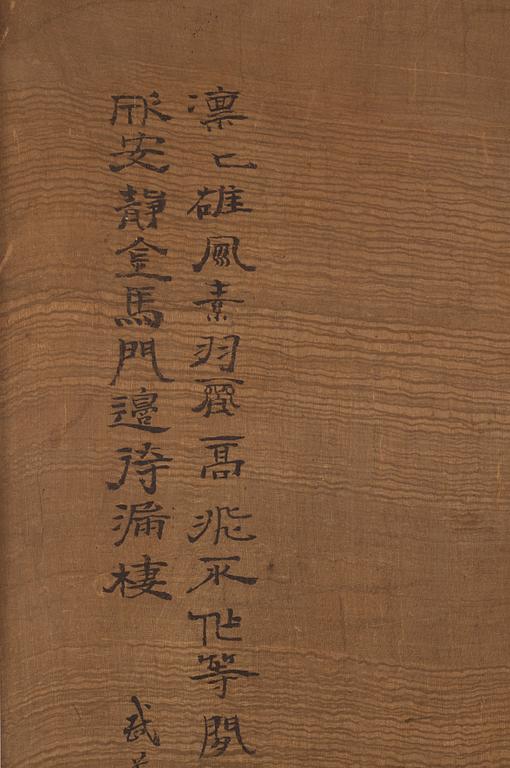 凛〻雄風素羽齊高飛不作等閑
形安靜金馬門邊待漏棲
武